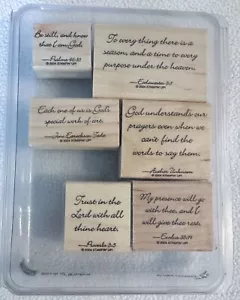 Be still, and know
that I am God.
—Psalms 46:10
© 2004 STAMPIN' UP!
To every thing there is a
season, and a time to every
purpose under the heaven.
—Ecclesiastes 3:1
© 2004 STAMPIN' UP!
Each one of us is God's
special work of art.
—Joni Eareckson Tada
© 2004 STAMPIN' UP!
God understands our
prayers even when we
can't find the
words to say them.
© 2004 STAMPIN' UP!
Trust in the
Lord with all
thine heart.
—Proverbs 3:5
© 2004 STAMPIN' UP!
My presence will go
with thee, and I
will give thee rest.
—Exodus 33:14
© 2004 STAMPIN' UP!